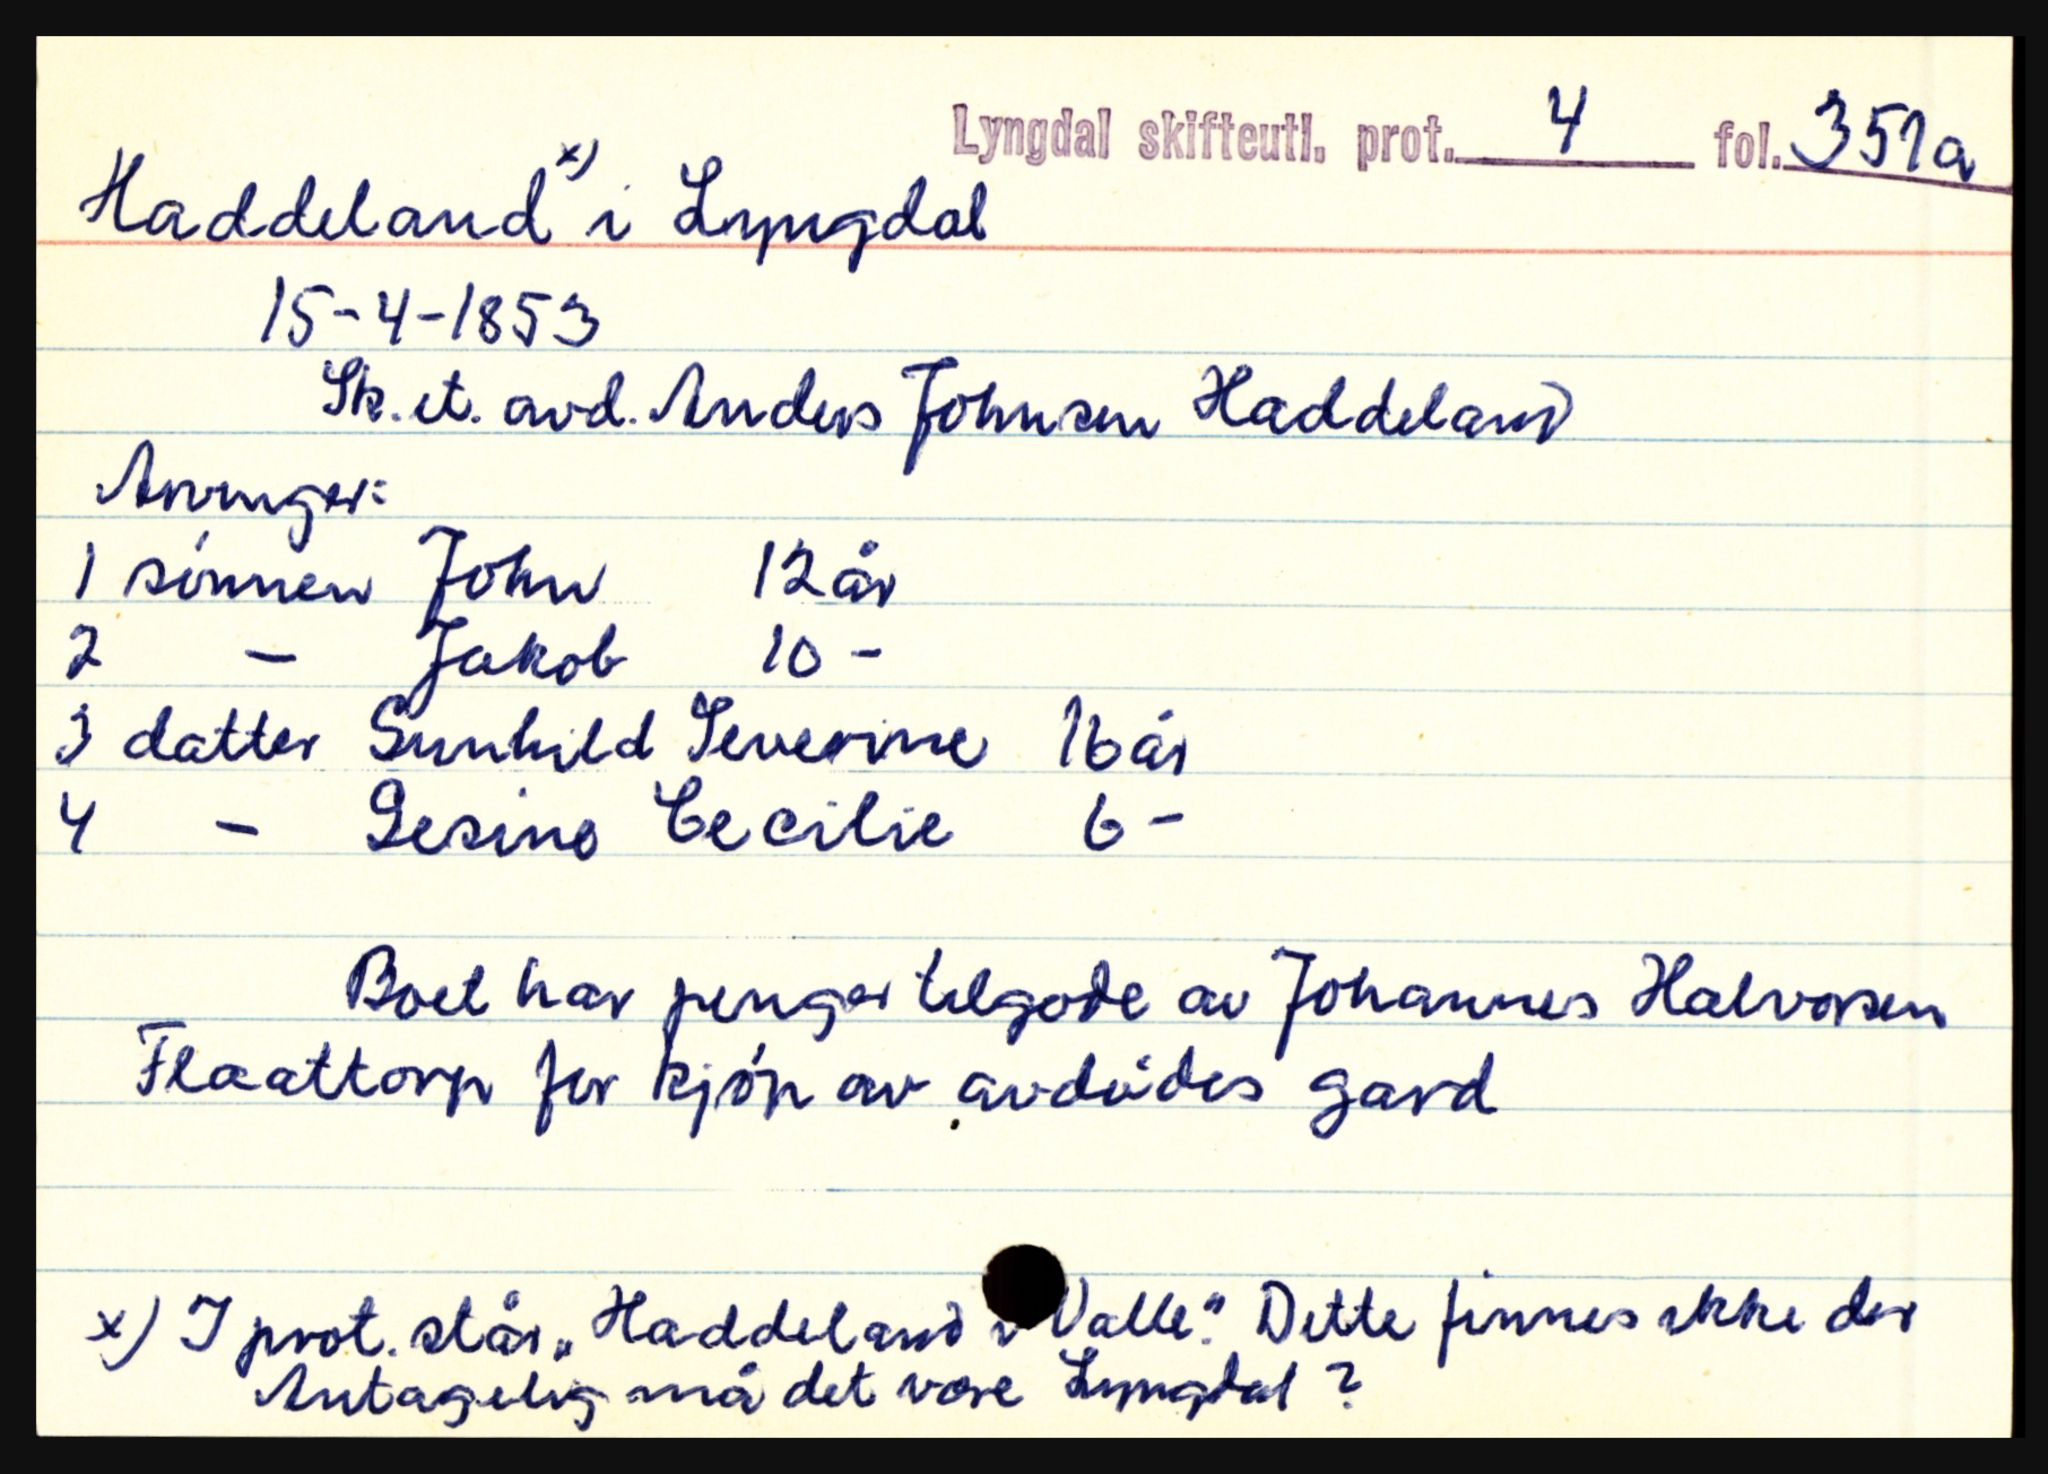 Lyngdal skifteutl. prot. 4 fol. 351a
Haddeland x) i Lyngdal
15-4-1853
Sk. et. avd. Anders Johnsen Haddeland
Arvinger:
1 sønnen John 12 år
2 - Jakob 10 -
3 datter Gunhild Severine 16 år
4 - Gesine Cecilie 6 -
Boet har penger tilgode av Johannes Halvorsen
Flaattorp for kjøp av avdødes gard
x) I prot. står „Haddeland i Valle". Dette finnes ikke der
Antagelig må det være Lyngdal ?